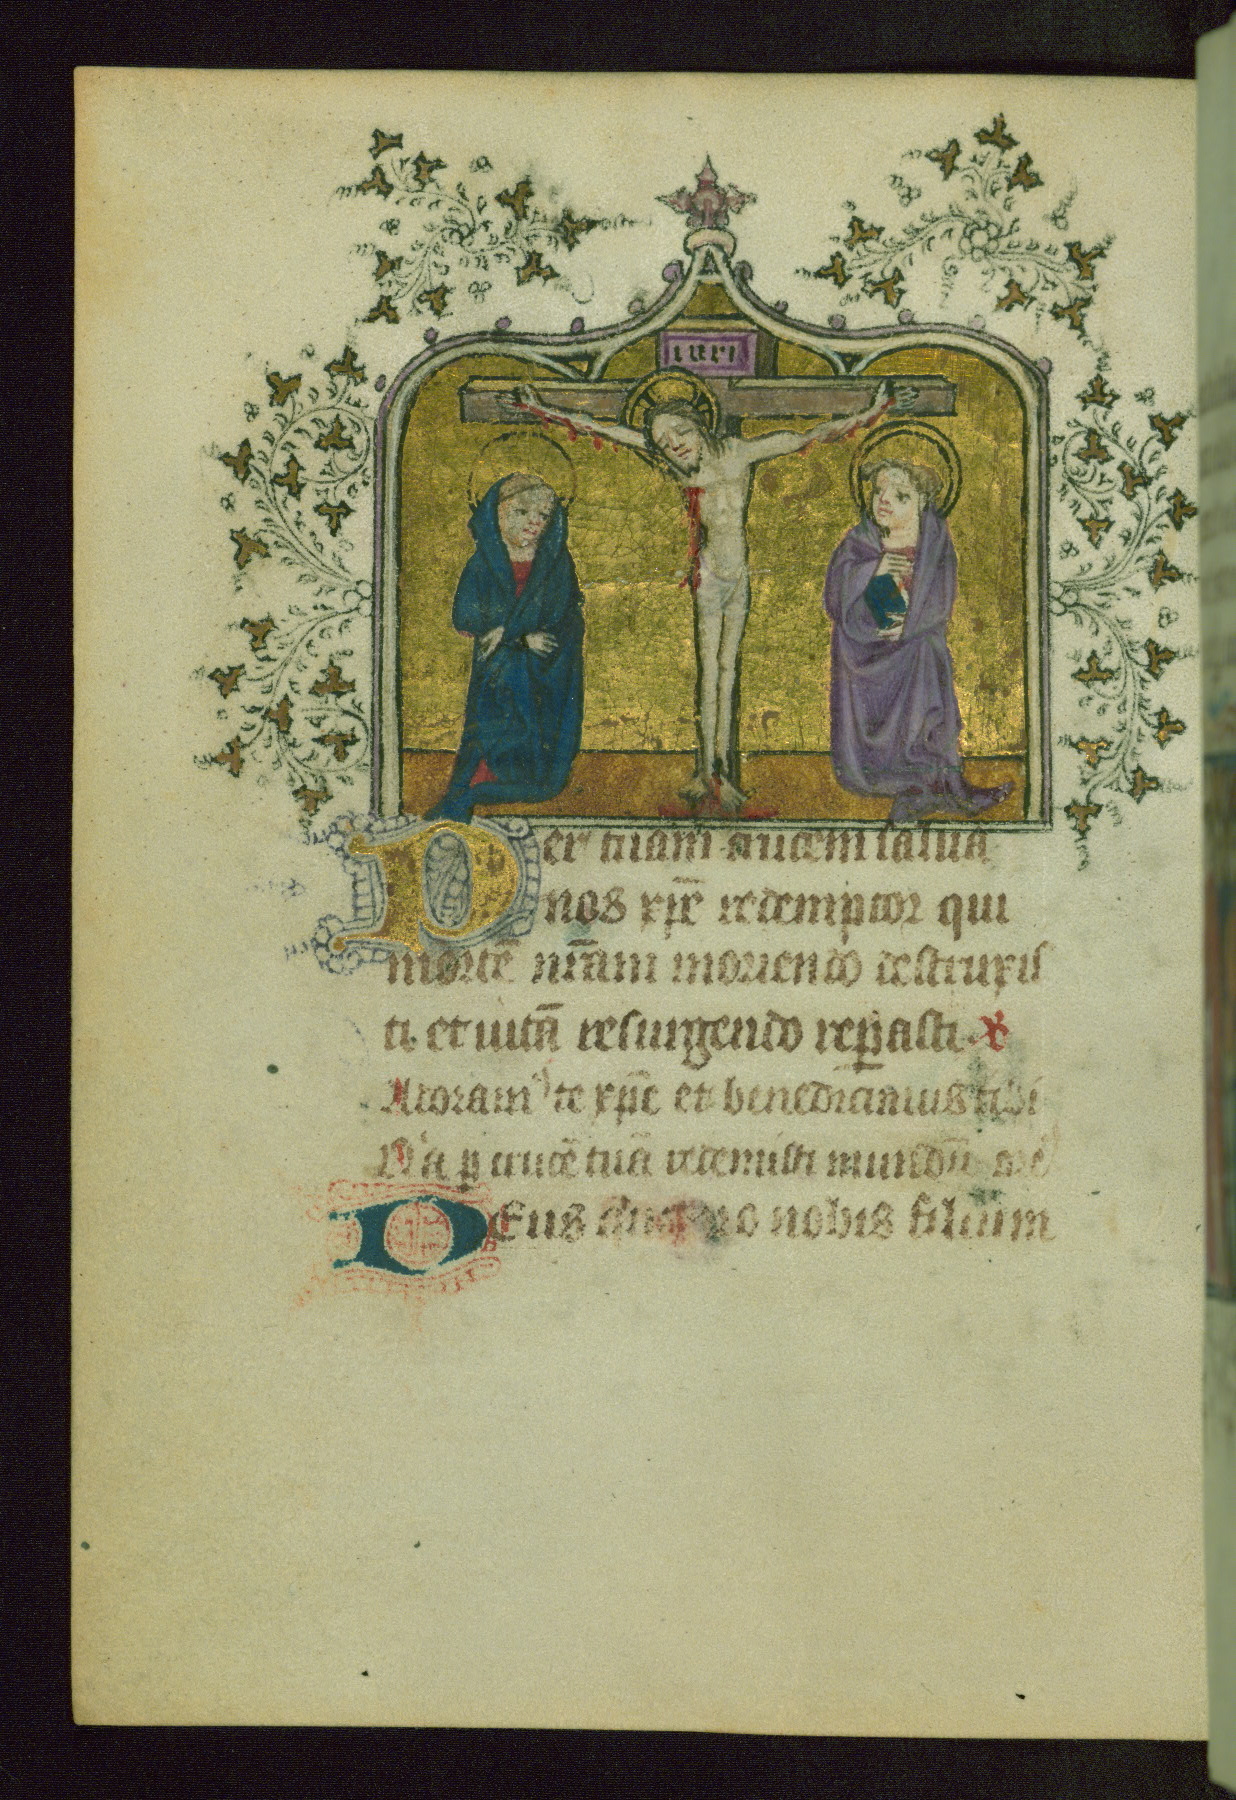 inri
Per tuam crucem salua
nos xp̄e redemptor qui
mortē nr̄am moriendo destruxis
ti et uitā resurgendo rep̱asti ꝟ
Adoram⁹ te xp̄e et benedicimus tibi
Q'a ꝑ crucē tuā redemisti mundū
Deus qui pro nobis filium